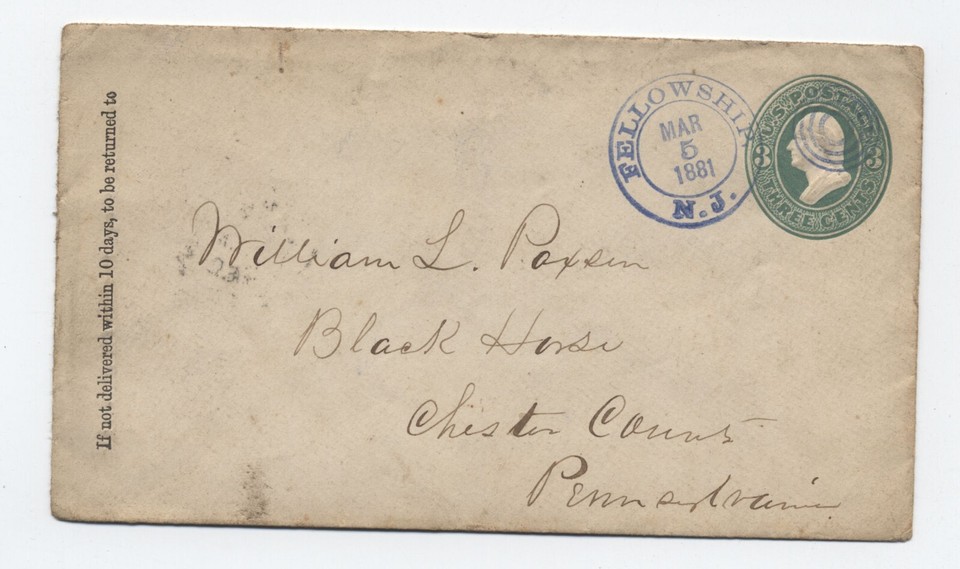 If not delivered within 10 days, to be returned to
FELLOWSHIP
MAR
5
1881
N.J.
U.S. POSTAGE
3 3
THREE CENTS
William L. Paxson
Black Horse
Chester County
Pennsylvania